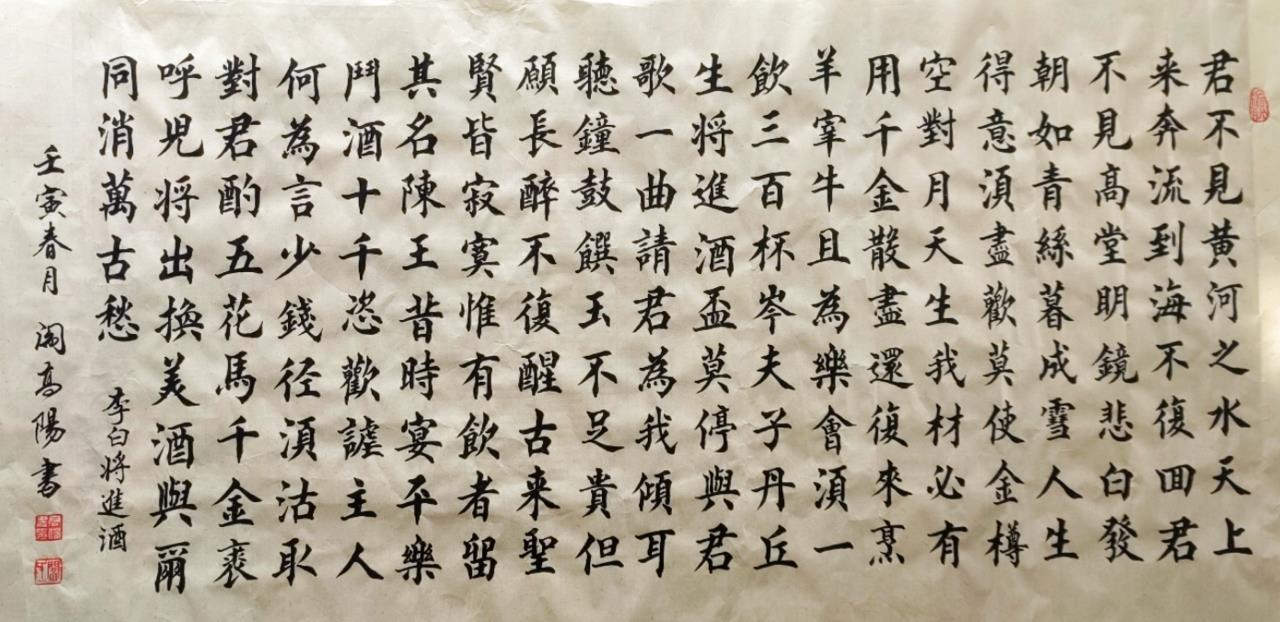 君不見黄河之水天上
来奔流到海不復回君
不見高堂明鏡悲白發
朝如青絲暮成雪人生
得意須盡歡莫使金樽
空對月天生我材必有
用千金散盡還復來烹
羊宰牛且為樂會須一
飲三百杯岑夫子丹丘
生将進酒盃莫停與君
歌一曲請君為我傾耳
聽鐘鼓饌玉不足貴但
願長醉不復醒古来聖
賢皆寂寞惟有飲者留
其名陳王昔時宴平樂
鬥酒十千恣歡謔主人
何為言少錢径須沽取
對君酌五花馬千金裘
呼児将出換美酒與爾
同消萬古愁
李白将進酒
壬寅春月 闞高陽書